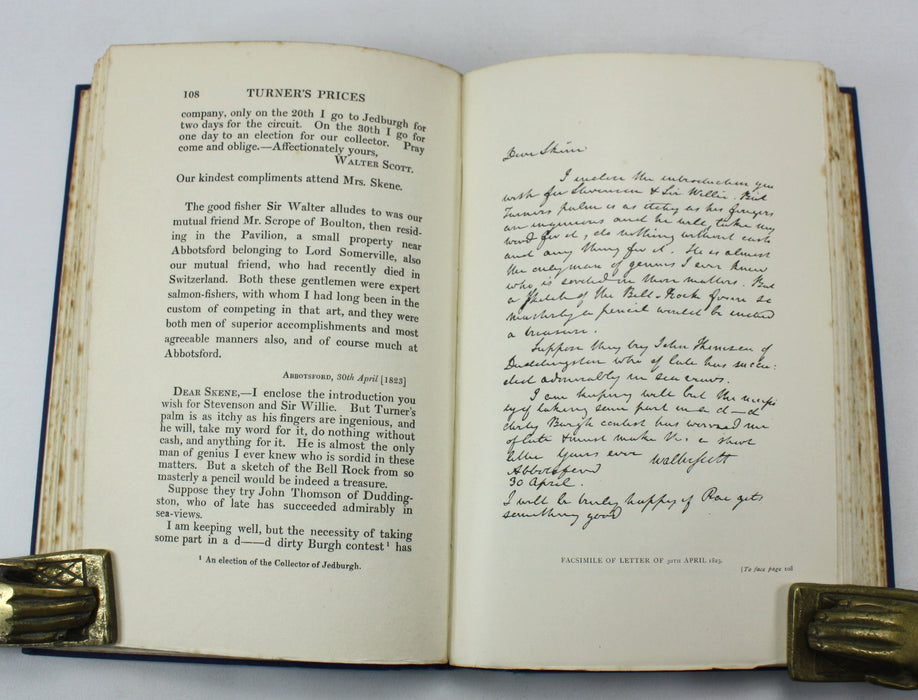 108 TURNER'S PRICES
company, only on the 20th I go to Jedburgh for
two days for the circuit. On the 30th I go for
one day to an election for our collector. Pray
come and oblige.—Affectionately yours,
WALTER SCOTT.
Our kindest compliments attend Mrs. Skene.
The good fisher Sir Walter alludes to was our
mutual friend Mr. Scrope of Boulton, then resid-
ing in the Pavilion, a small property near
Abbotsford belonging to Lord Somerville, also
our mutual friend, who had recently died in
Switzerland. Both these gentlemen were expert
salmon-fishers, with whom I had long been in the
custom of competing in that art, and they were
both men of superior accomplishments and most
agreeable manners also, and of course much at
Abbotsford.
ABBOTSFORD, 30th April [1823]
DEAR SKENE,—I enclose the introduction you
wish for Stevenson and Sir Willie. But Turner's
palm is as itchy as his fingers are ingenious, and
he will, take my word for it, do nothing without
cash, and anything for it. He is almost the only
man of genius I ever knew who is sordid in these
matters. But a sketch of the Bell Rock from so
masterly a pencil would be indeed a treasure.
Suppose they try John Thomson of Dudding-
ston, who of late has succeeded admirably in
sea-views.
I am keeping well, but the necessity of taking
some part in a d——d dirty Burgh contest¹ has
¹ An election of the Collector of Jedburgh.
Dear Skene
I enclose the introduction you
wish for Stevenson & Sir Willie. But
Turners palm is as itchy as his fingers
are ingenious and he will, take my
word for it, do nothing without cash
and any thing for it. He is almost
the only man of genius I ever knew
who is sordid in these matters. But
a sketch of the Bell-Rock from so
masterly a pencil would be indeed
a treasure.
Suppose they try John Thomson of
Duddingston who of late has succee:
ded admirably in sea views.
I am keeping well but the necessi
ty of taking some part in a d—d
dirty Burgh contest has worried me
of late & must make this a short
letter Yours ever Walter Scott
Abbotsford
30 April.
I will be truly happy if Rae gets
something good
FACSIMILE OF LETTER OF 30TH APRIL 1823.
[To face page 108